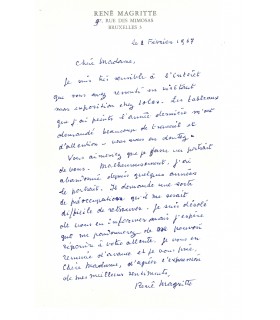 RENÉ MAGRITTE
97, RUE DES MIMOSAS
BRUXELLES 3
le 2 Février 1967
Chère Madame,
Je suis très sensible à l'intérêt
que vous avez ressenti en visitant
mon exposition chez Iolas. Les tableaux
que j'ai peints l'année dernière m'ont
demandé beaucoup de travail et
d'attention - vous vous en doutez
Vous aimeriez que je fasse un portrait
de vous. Malheureusement, j'ai
abandonné depuis quelques années
le portrait. Il demande une sorte
de préoccupations qu'il me serait
difficile de retrouver. Je suis désolé
de vous en informer mais j'espère
que me pardonnerez de pouvoir
répondre à votre attente. Je vous en
remercie d'avance et je vous prie,
Chère Madame, d'agréer l'expression
de mes meilleurs sentiments.
René Magritte